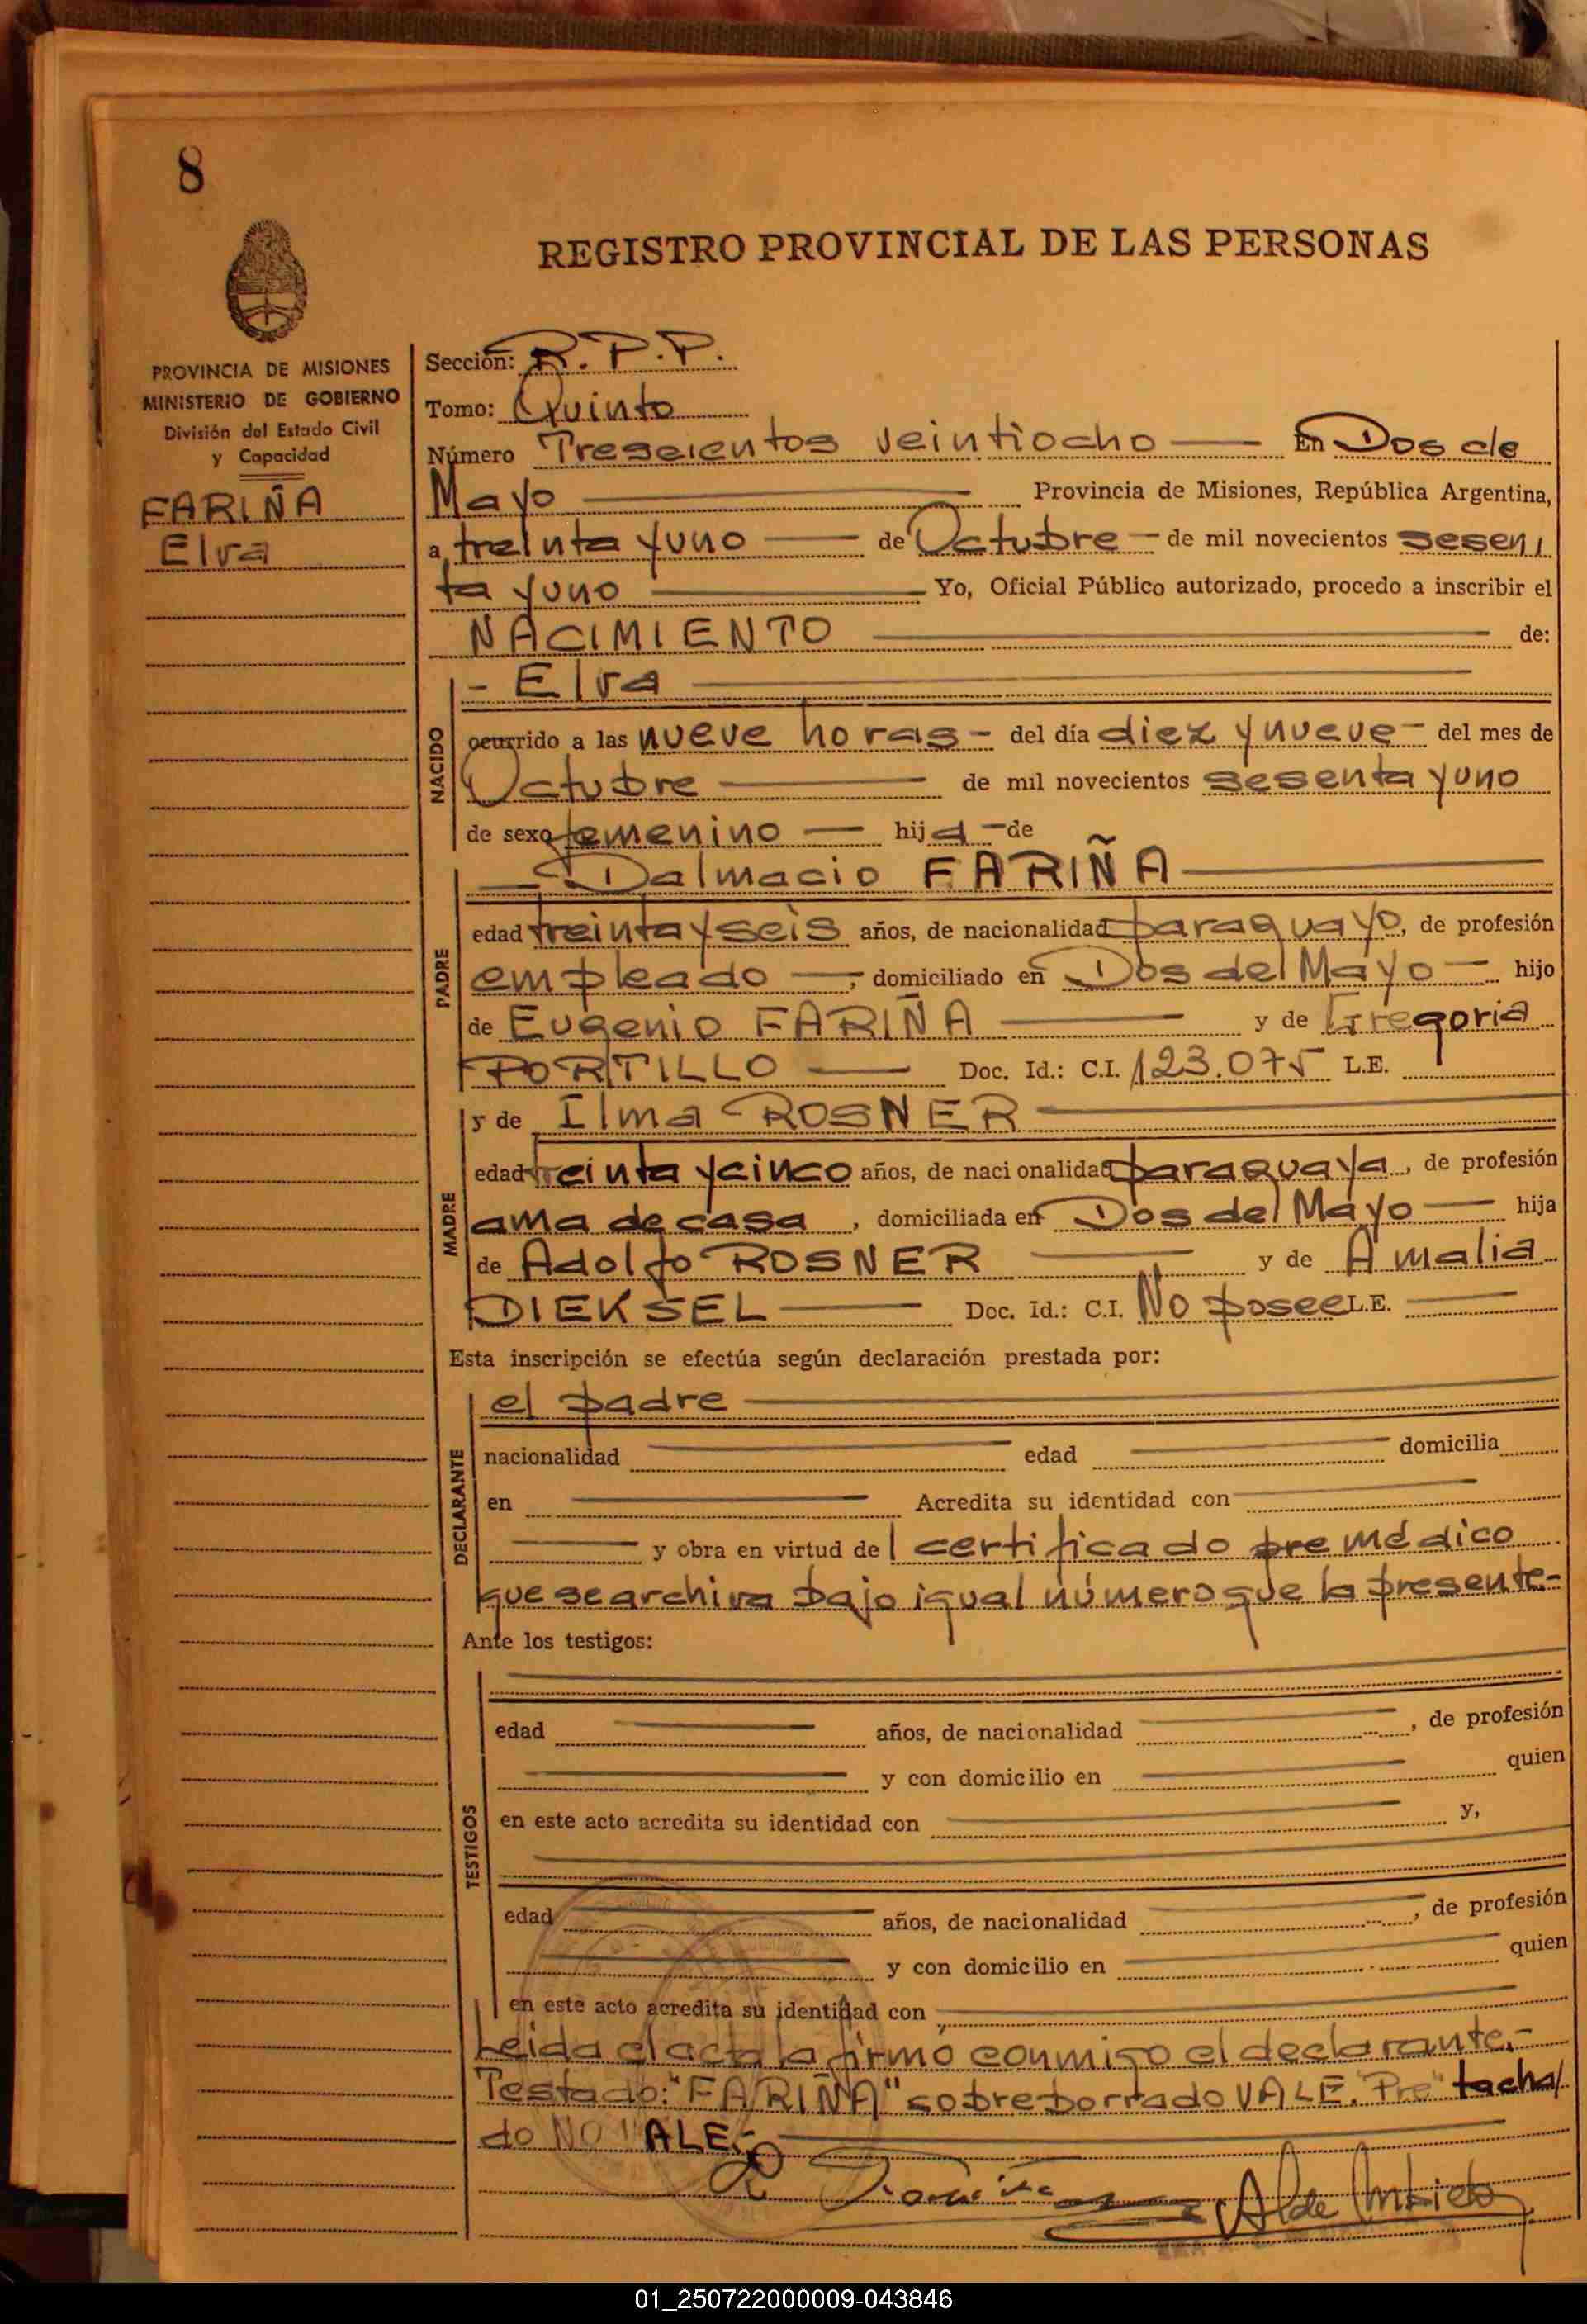 8
REGISTRO PROVINCIAL DE LAS PERSONAS
PROVINCIA DE MISIONES
MINISTERIO DE GOBIERNO
División del Estado Civil
y Capacidad
FARIÑA
Elva
Sección: R.P.P.
Tomo: Quinto
Número Trescientos veintiocho En Dos de
Mayo Provincia de Misiones, República Argentina,
a treinta y uno de Octubre de mil novecientos sesen
ta y uno Yo, Oficial Público autorizado, procedo a inscribir el
NACIMIENTO de:
NACIDO
- Elva
ocurrido a las nueve horas - del día diez y nueve - del mes de
Octubre de mil novecientos sesenta y uno
de sexo femenino hija - de
PADRE
Dalmacio FARIÑA
edad treinta y seis años, de nacionalidad paraguayo, de profesión
empleado, domiciliado en Dos del Mayo hijo
de Eugenio FARIÑA y de Gregoria
PORTILLO Doc. Id.: C.I. 123.075 L.E.
MADRE
y de Ilma ROSNER
edad treinta y cinco años, de nacionalidad paraguaya, de profesión
ama de casa, domiciliada en Dos del Mayo hija
de Adolfo ROSNER y de Amalia
DIEKSEL Doc. Id.: C.I. No posee L.E.
Esta inscripción se efectúa según declaración prestada por:
DECLARANTE
el padre
nacionalidad edad domicilia
en Acredita su identidad con
y obra en virtud del certificado pre médico
que se archiva bajo igual número que la presente.-
Ante los testigos:
TESTIGOS
edad años, de nacionalidad , de profesión
y con domicilio en quien
en este acto acredita su identidad con y,
edad años, de nacionalidad , de profesión
y con domicilio en quien
en este acto acredita su identidad con
Leida el acta la firmó conmigo el declarante.-
Testado: "FARIÑA" sobreborrado VALE. "Pre" tacha
do NO VALE.-
01_250722000009-043846